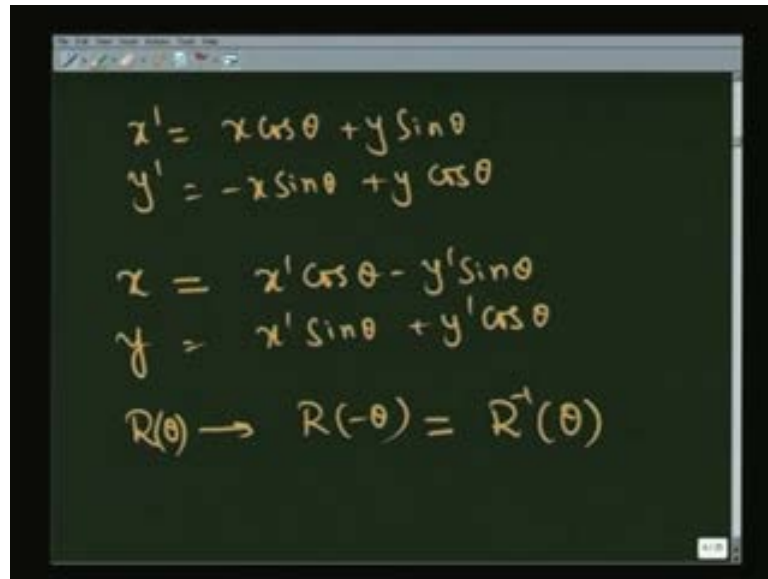 x' = x cos θ + y sin θ
y' = -x sin θ + y cos θ
x = x' cos θ - y' sin θ
y = x' sin θ + y' cos θ
R(θ) → R(-θ) = R⁻¹(θ)